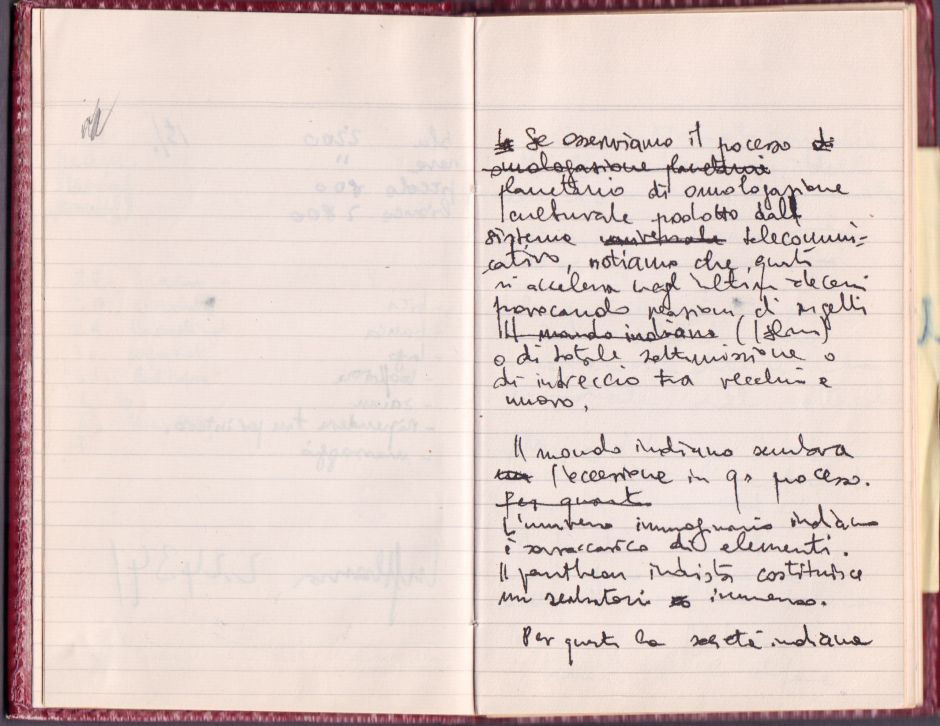 Se osserviamo il pocesso di
omologazione planetari
planetario di omologazione
culturale podotto dal
sistema universale telecomuni-
cativo, notiamo che, questi
si accelera negli ultimi decenni
provocando reazioni di rigetti
Il mondo indiano (Islam)
o di totale sottomissione o
di intreccio tra vecchio e
nuovo.
Il mondo indiano sembra
l'eccezione in qs pocesso.
Per quanto
L'universo immaginario indiano
è sovraccarico di elementi.
Il pantheon induista costituisce
un serbatoio immenso.
Per questo la società indiana